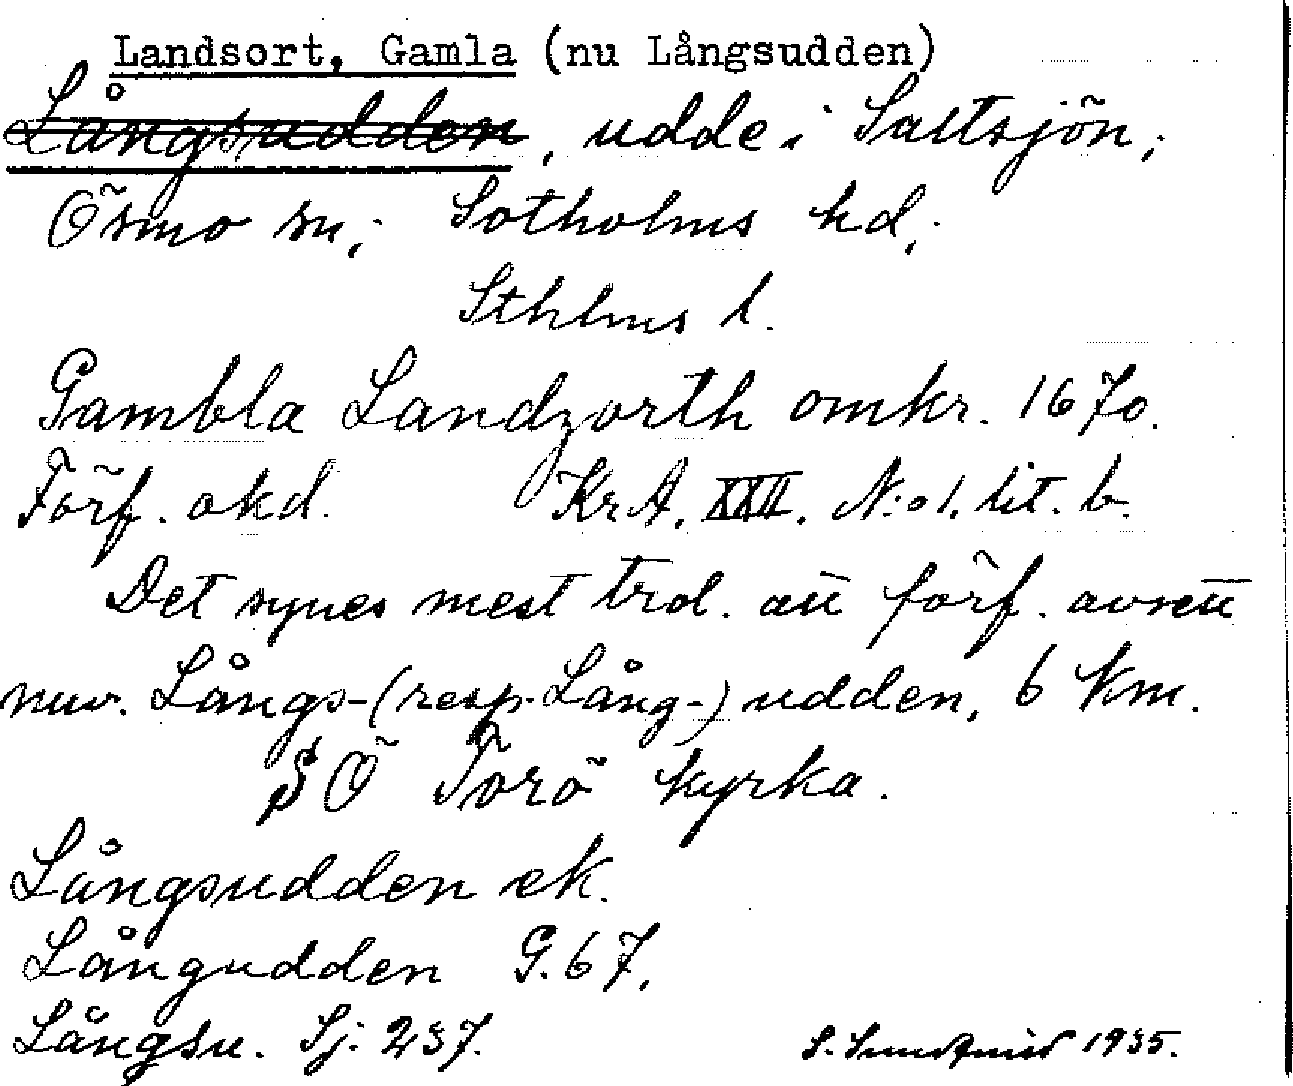 Landsort, Gamla (nu Långsudden)
Långsudden, udde i Saltsjön,
Ösmo sn, Sotholms hd,
Sthlms l.
Gambla Landzorth omkr. 1670.
Förf. okd. KrA, XXII, N:o 1. lit. b.
Det synes mest trol. att förf. avsett
nuv. Långs-(resp. Lång-)udden, 6 km.
SÖ Torö kyrka.
Långsudden ek.
Långudden G. 67.
Långsu. Sj. 237. S. Sundqvist 1935.